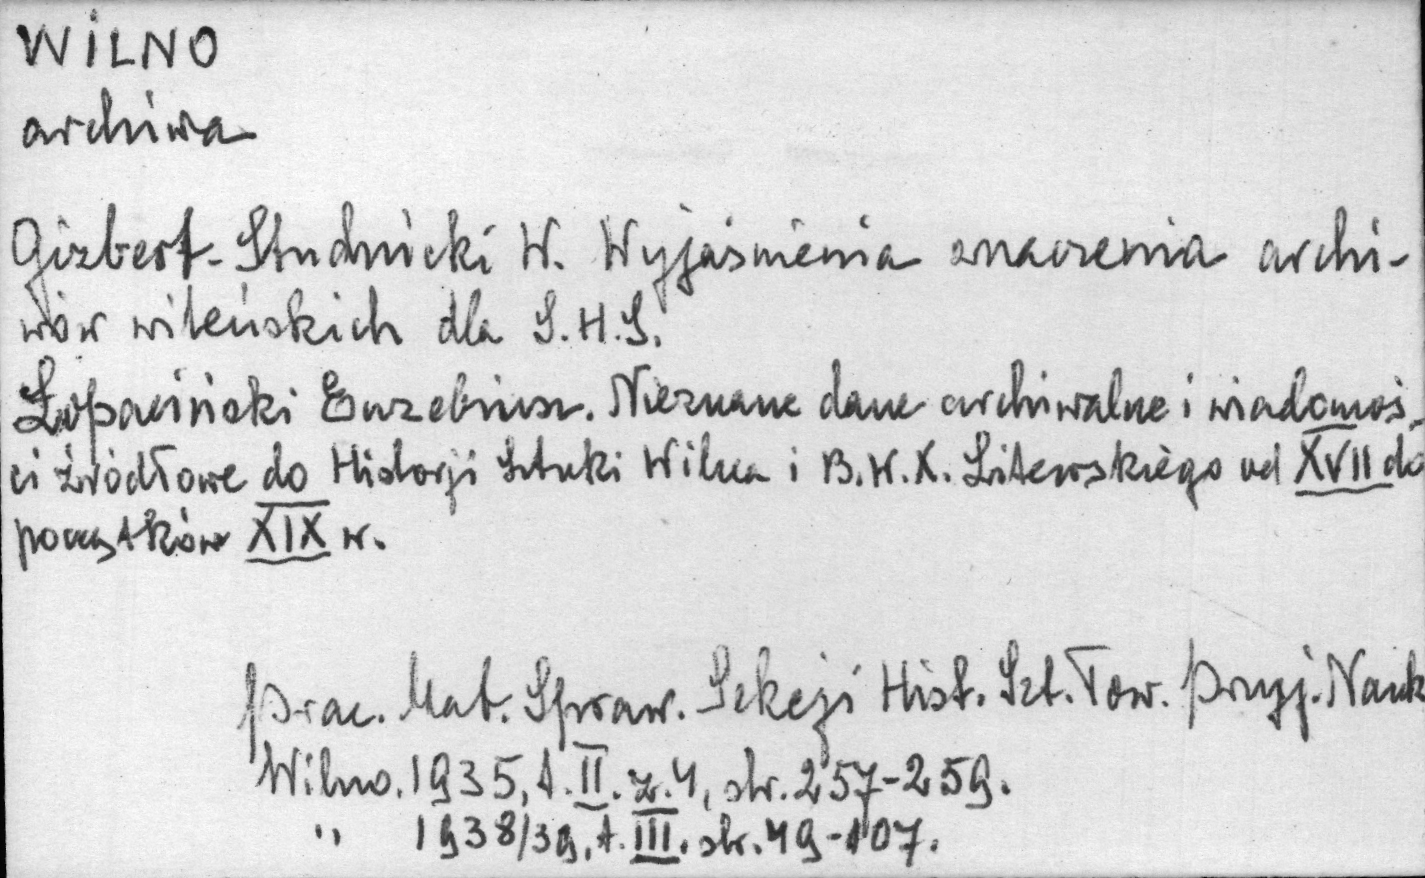 WILNO
archiwa
Gizbert-Studnicki W. Wyjaśnienia znaczenia archi-
wów wileńskich dla S.H.S.
Łopaciński Euzebiusz. Nieznane dane archiwalne i wiadomoś-
ci źródłowe do Historji Sztuki Wilna i B.W.X. Litewskiego od XVII do
początków XIX w.
Prac. Mat. Spraw. Sekcji Hist. Szt. Tow. Przyj. Nauk
Wilno. 1935, t. II. z. 4, str. 257-259.
" 1938/39, t. III. str. 49-107.